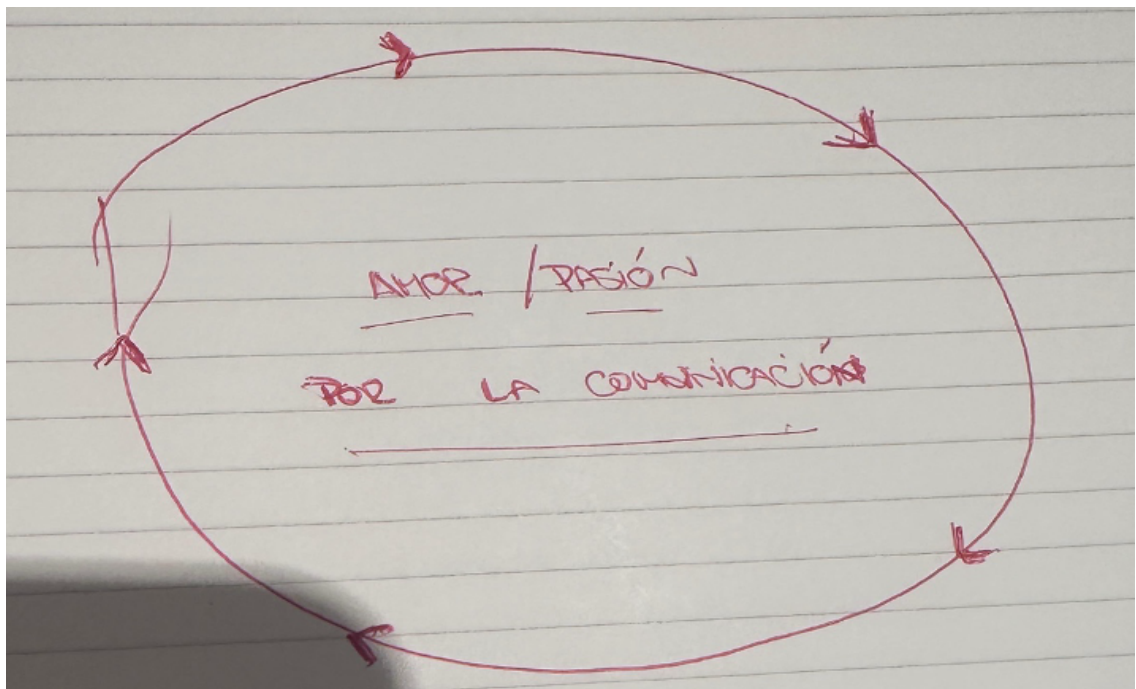 AMOR / PASIÓN
POR LA COMUNICACIÓN